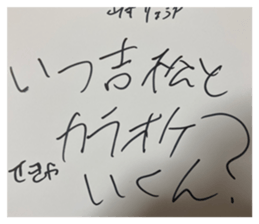 いつ吉松と
カラオケ
せきや
いくん？